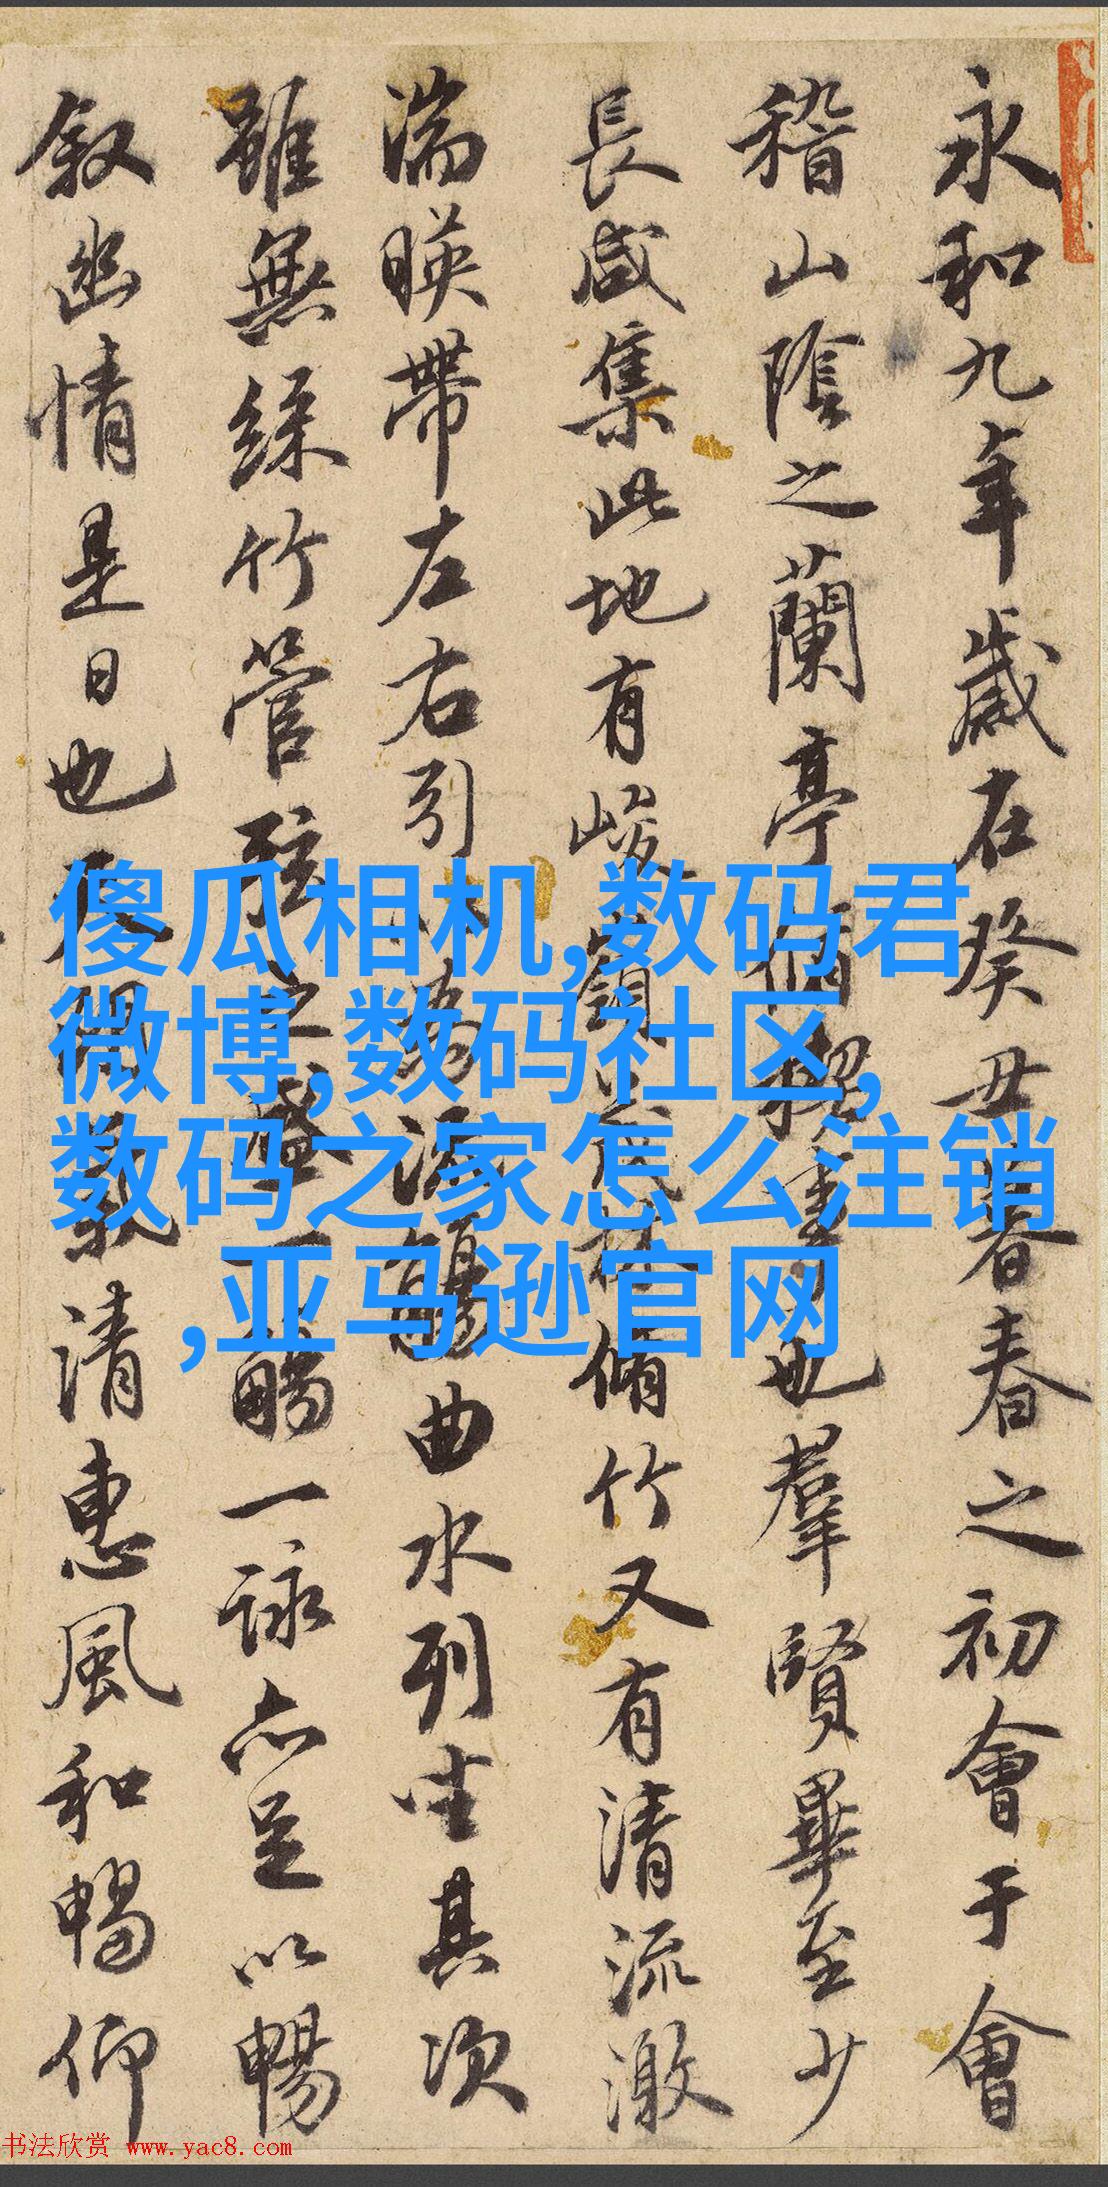 永和九年歲在癸丑暮春之初會于會
稽山陰之蘭亭脩稧事也羣賢畢至少
長咸集此地有峻嶺茂林脩竹又有清流激
湍暎帶左右引以為流觴曲水列坐其次
雖無絲竹管弦之盛一觴一詠亦足以暢
叙幽情是日也天朗氣清惠風和暢仰
傻瓜相机,数码君
微博,数码社区,
数码之家怎么注销
,亚马逊官网
书法欣赏 www.yac8.com